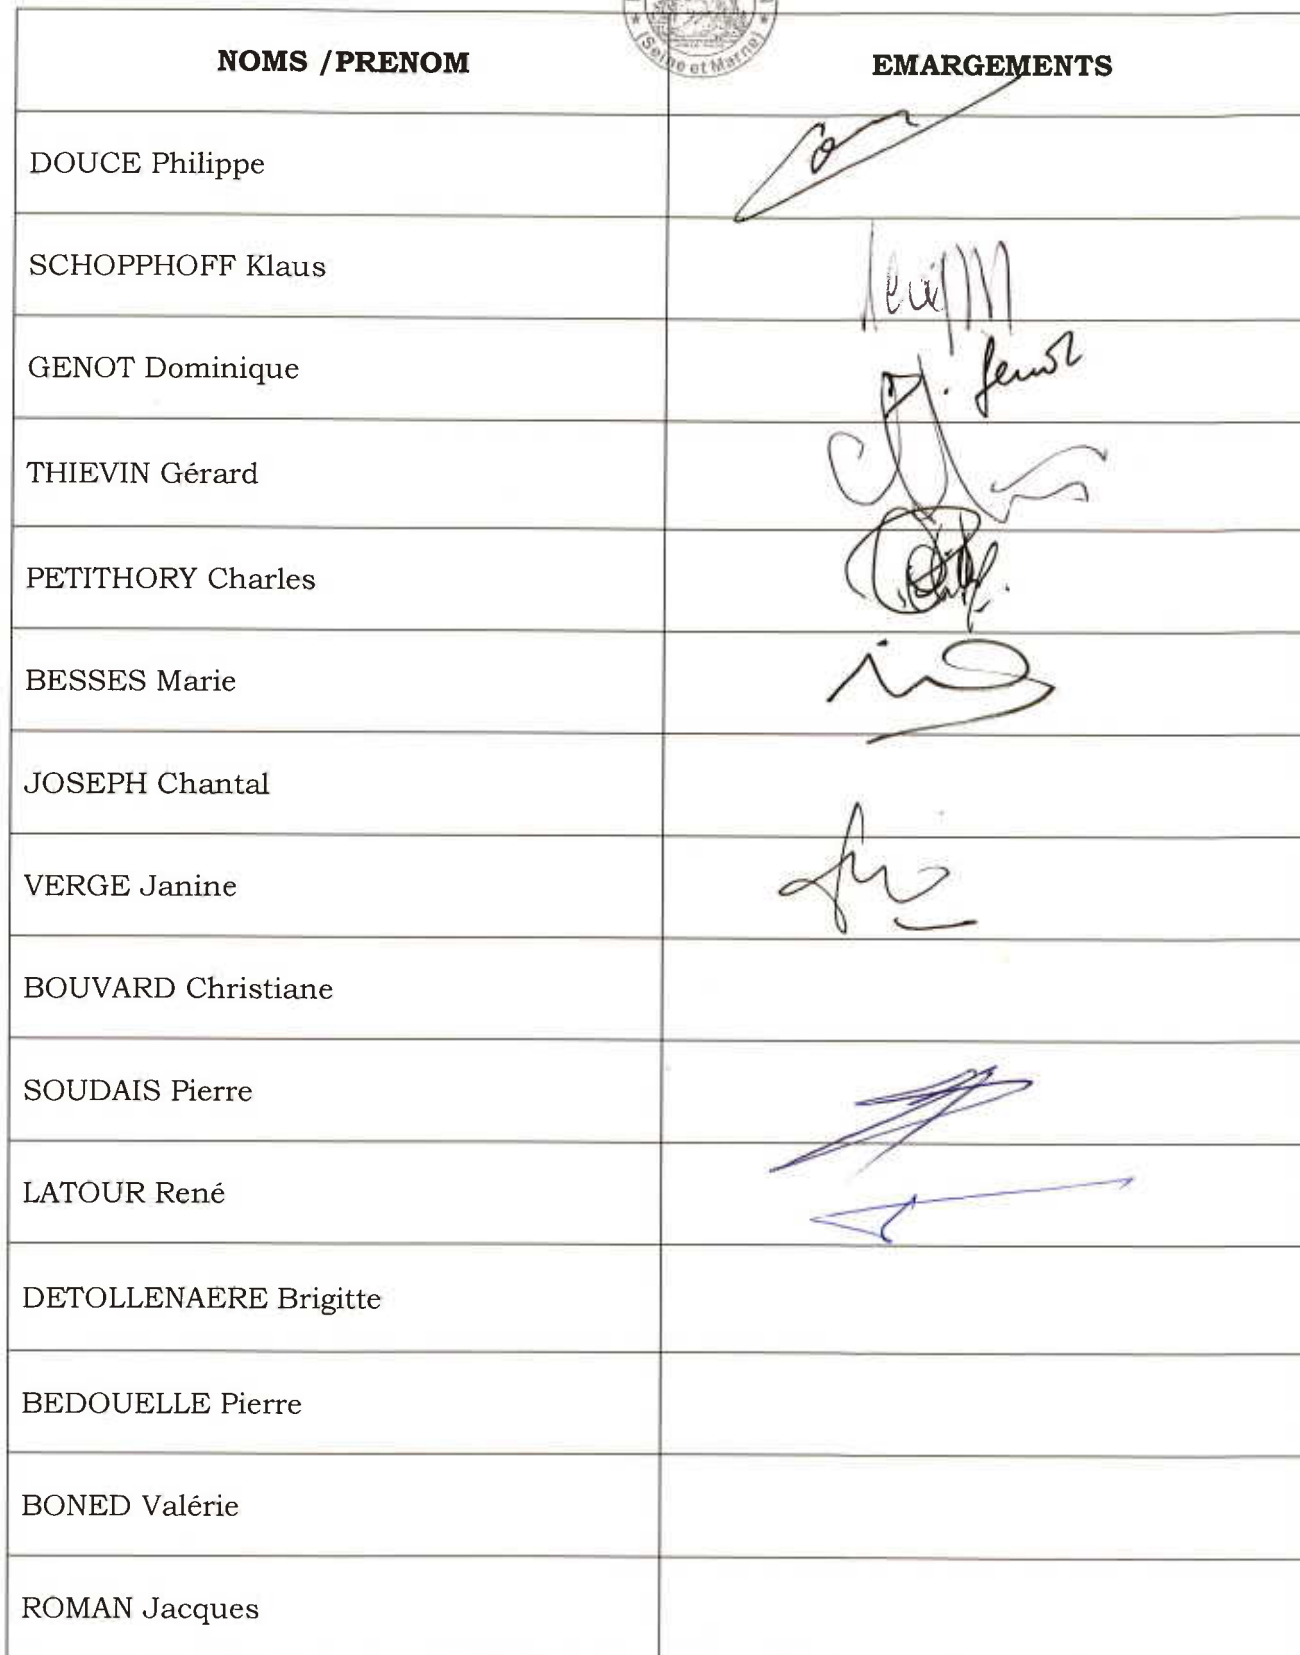 (Seine et Marne)
NOMS /PRENOM EMARGEMENTS
DOUCE Philippe
SCHOPPHOFF Klaus
GENOT Dominique
THIEVIN Gérard
PETITHORY Charles
BESSES Marie
JOSEPH Chantal
VERGE Janine
BOUVARD Christiane
SOUDAIS Pierre
LATOUR René
DETOLLENAERE Brigitte
BEDOUELLE Pierre
BONED Valérie
ROMAN Jacques